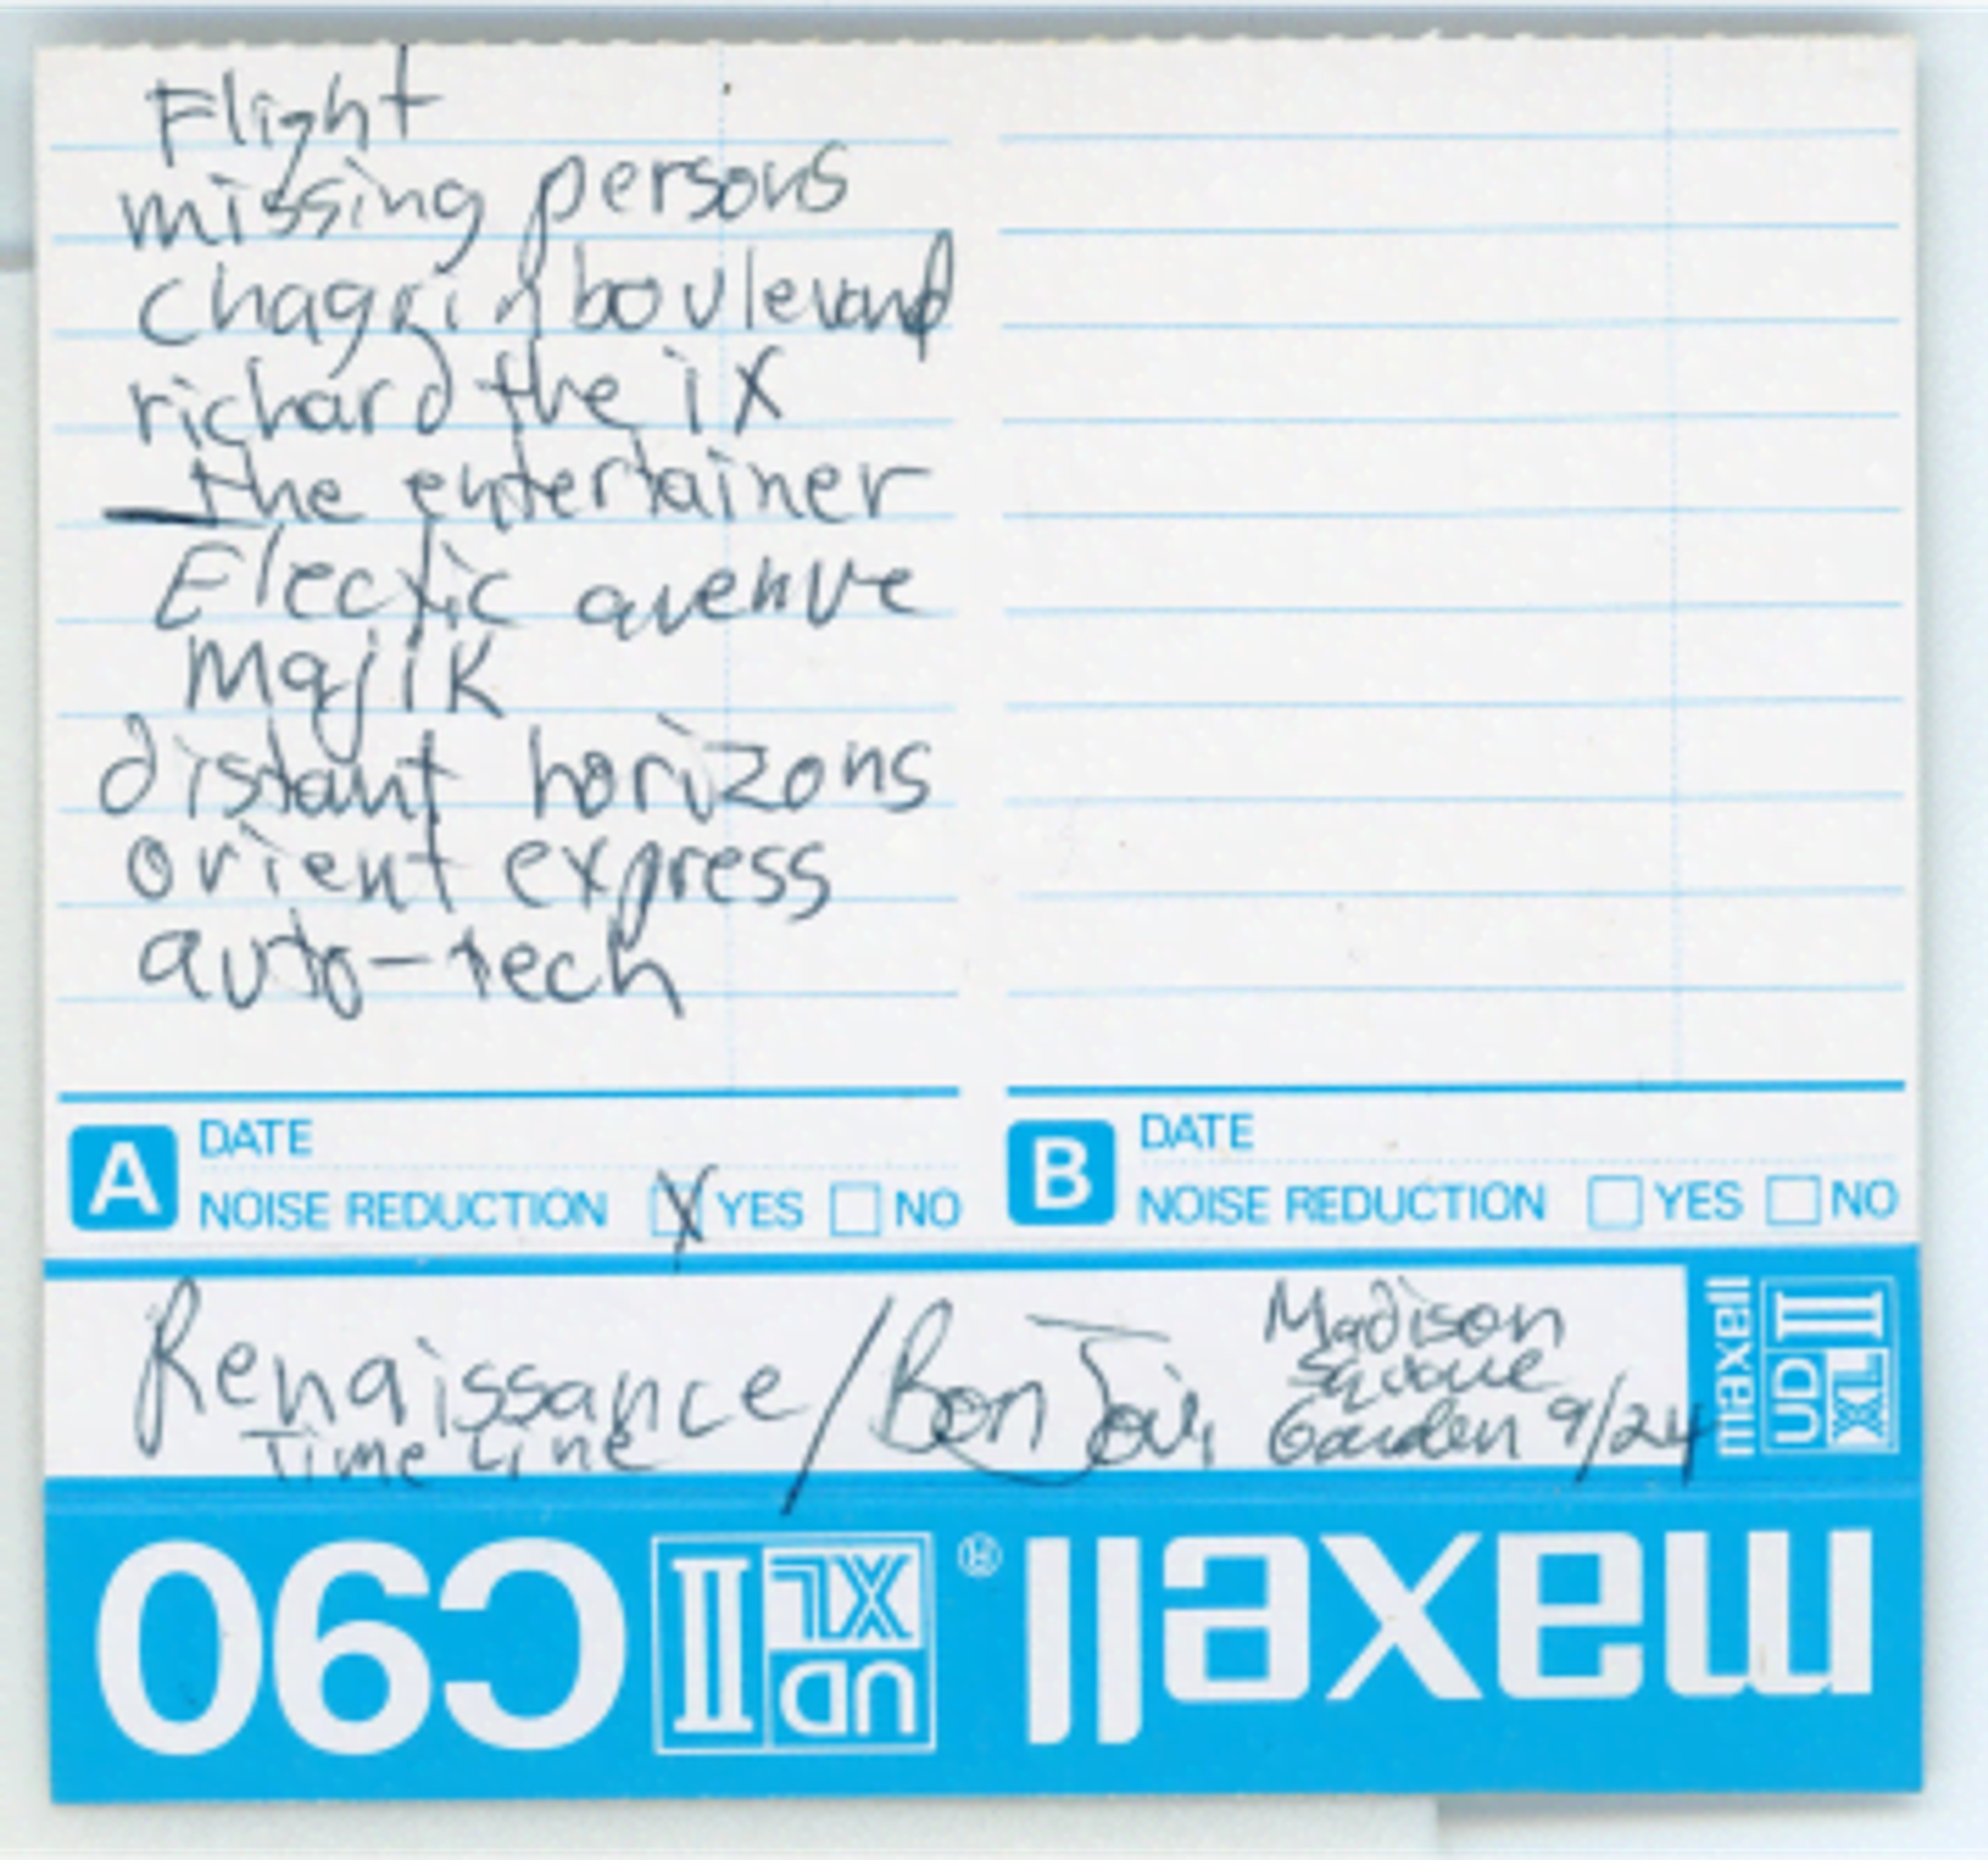 Flight
missing persons
chagrin boulevard
richard the iX
the entertainer
Electric avenue
Majik
distant horizons
orient express
auto-tech
A DATE
NOISE REDUCTION X YES NO
B DATE
NOISE REDUCTION YES NO
Renaissance / Bon Jovi
Time Line
Madison
Square
Garden 9/24
maxell UD XL II
maxell® UD XL II C90